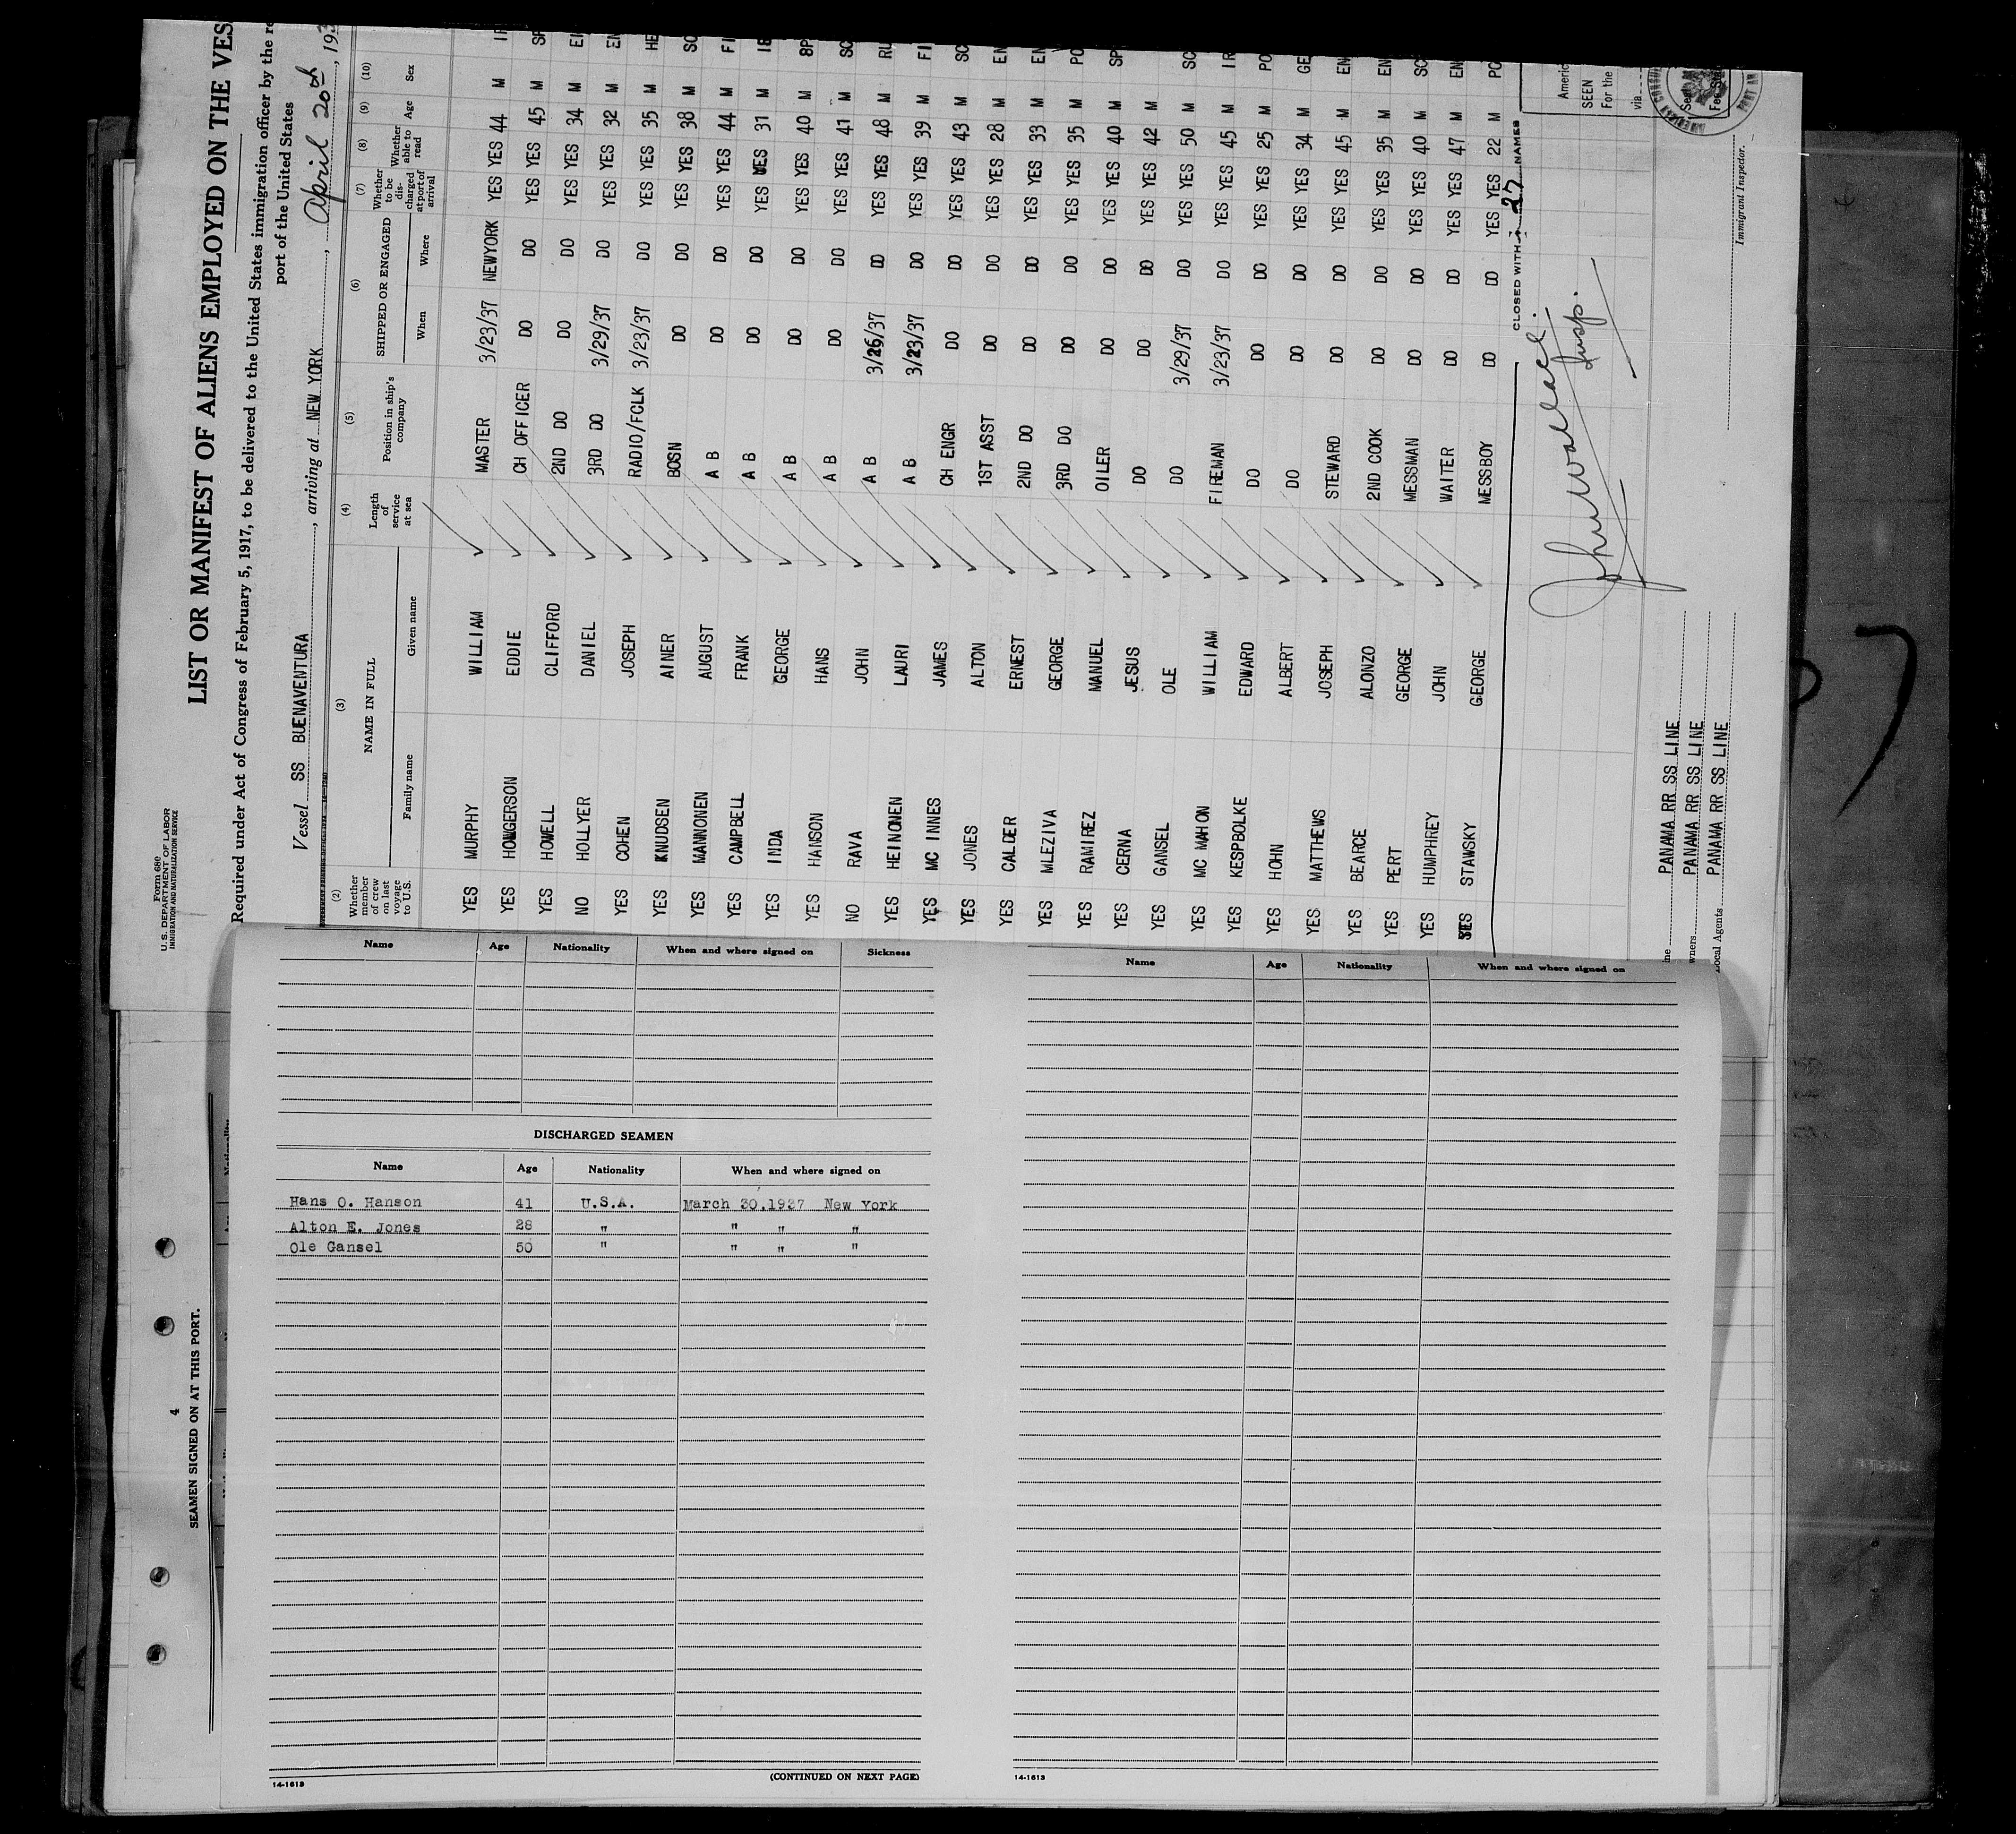 Form 680
U. S. DEPARTMENT OF LABOR
IMMIGRATION AND NATURALIZATION SERVICE
LIST OR MANIFEST OF ALIENS EMPLOYED ON THE VES
Required under Act of Congress of February 5, 1917, to be delivered to the United States immigration officer by the re
port of the United States
Vessel SS BUENAVENTURA, arriving at NEW YORK, April 20th, 193
(2) (3) (4) (5) (6) (7) (8) (9) (10)
Whether member of crew on last voyage to U.S. NAME IN FULL Family name Given name Length of service at sea Position in ship's company SHIPPED OR ENGAGED When Where Whether to be discharged at port of arrival Whether able to read Age Sex
YES MURPHY WILLIAM MASTER 3/23/37 NEWYORK YES YES 44 M
YES HOWGERSON EDDIE CH OFFICER DO DO YES YES 45 M SP
YES HOWELL CLIFFORD 2ND DO DO DO YES YES 34 M EN
NO HOLLYER DANIEL 3RD DO 3/29/37 DO YES YES 32 M EN
YES COHEN JOSEPH RADIO/FCLK 3/23/37 DO YES YES 35 M HE
YES KNUDSEN AINER BOSN DO DO YES YES 38 M SC
YES MANNONEN AUGUST A B DO DO YES YES 44 M FI
YES CAMPBELL FRANK A B DO DO YES YES 31 M
YES INDA GEORGE A B DO DO YES YES 40 M SP
YES HANSON HANS A B DO DO YES YES 41 M SC
NO RAVA JOHN A B 3/26/37 DO YES YES 48 M RU
YES HEINONEN LAURI A B 3/23/37 DO YES YES 39 M FI
YES MC INNES JAMES CH ENGR DO DO YES YES 43 M SC
YES JONES ALTON 1ST ASST DO DO YES YES 28 M EN
YES CALDER ERNEST 2ND DO DO DO YES YES 33 M EN
YES MLEZIVA GEORGE 3RD DO DO DO YES YES 35 M PO
YES RAMIREZ MANUEL OILER DO DO YES YES 40 M SP
YES CERNA JESUS DO DO DO YES YES 42 M
YES GANSEL OLE DO 3/29/37 DO YES YES 50 M SC
YES MC MAHON WILLIAM FIREMAN 3/23/37 DO YES YES 45 M IR
YES KESPBOLKE EDWARD DO DO DO YES YES 25 M PO
YES HOHN ALBERT DO DO DO YES YES 34 M GE
YES MATTHEWS JOSEPH STEWARD DO DO YES YES 45 M EN
YES BEARCE ALONZO 2ND COOK DO DO YES YES 35 M EN
YES PERT GEORGE MESSMAN DO DO YES YES 40 M SC
YES HUMPHREY JOHN WAITER DO DO YES YES 47 M EN
YES STAWSKY GEORGE MESSBOY DO DO YES YES 22 M PO
CLOSED WITH 27 NAMES
Insp.
Americ
SEEN
For the
via
Immigrant Inspector.
PANAMA RR SS LINE
wners PANAMA RR SS LINE
ocal Agents PANAMA RR SS LINE
Name Age Nationality When and where signed on Sickness
DISCHARGED SEAMEN
Name Age Nationality When and where signed on
Hans O. Hanson 41 U.S.A. March 30.1937 New York
Alton E. Jones 28 " " " "
Ole Gansel 50 " " " "
14-1613 (CONTINUED ON NEXT PAGE)
Name Age Nationality When and where signed on
14-1613
4
SEAMEN SIGNED ON AT THIS PORT.